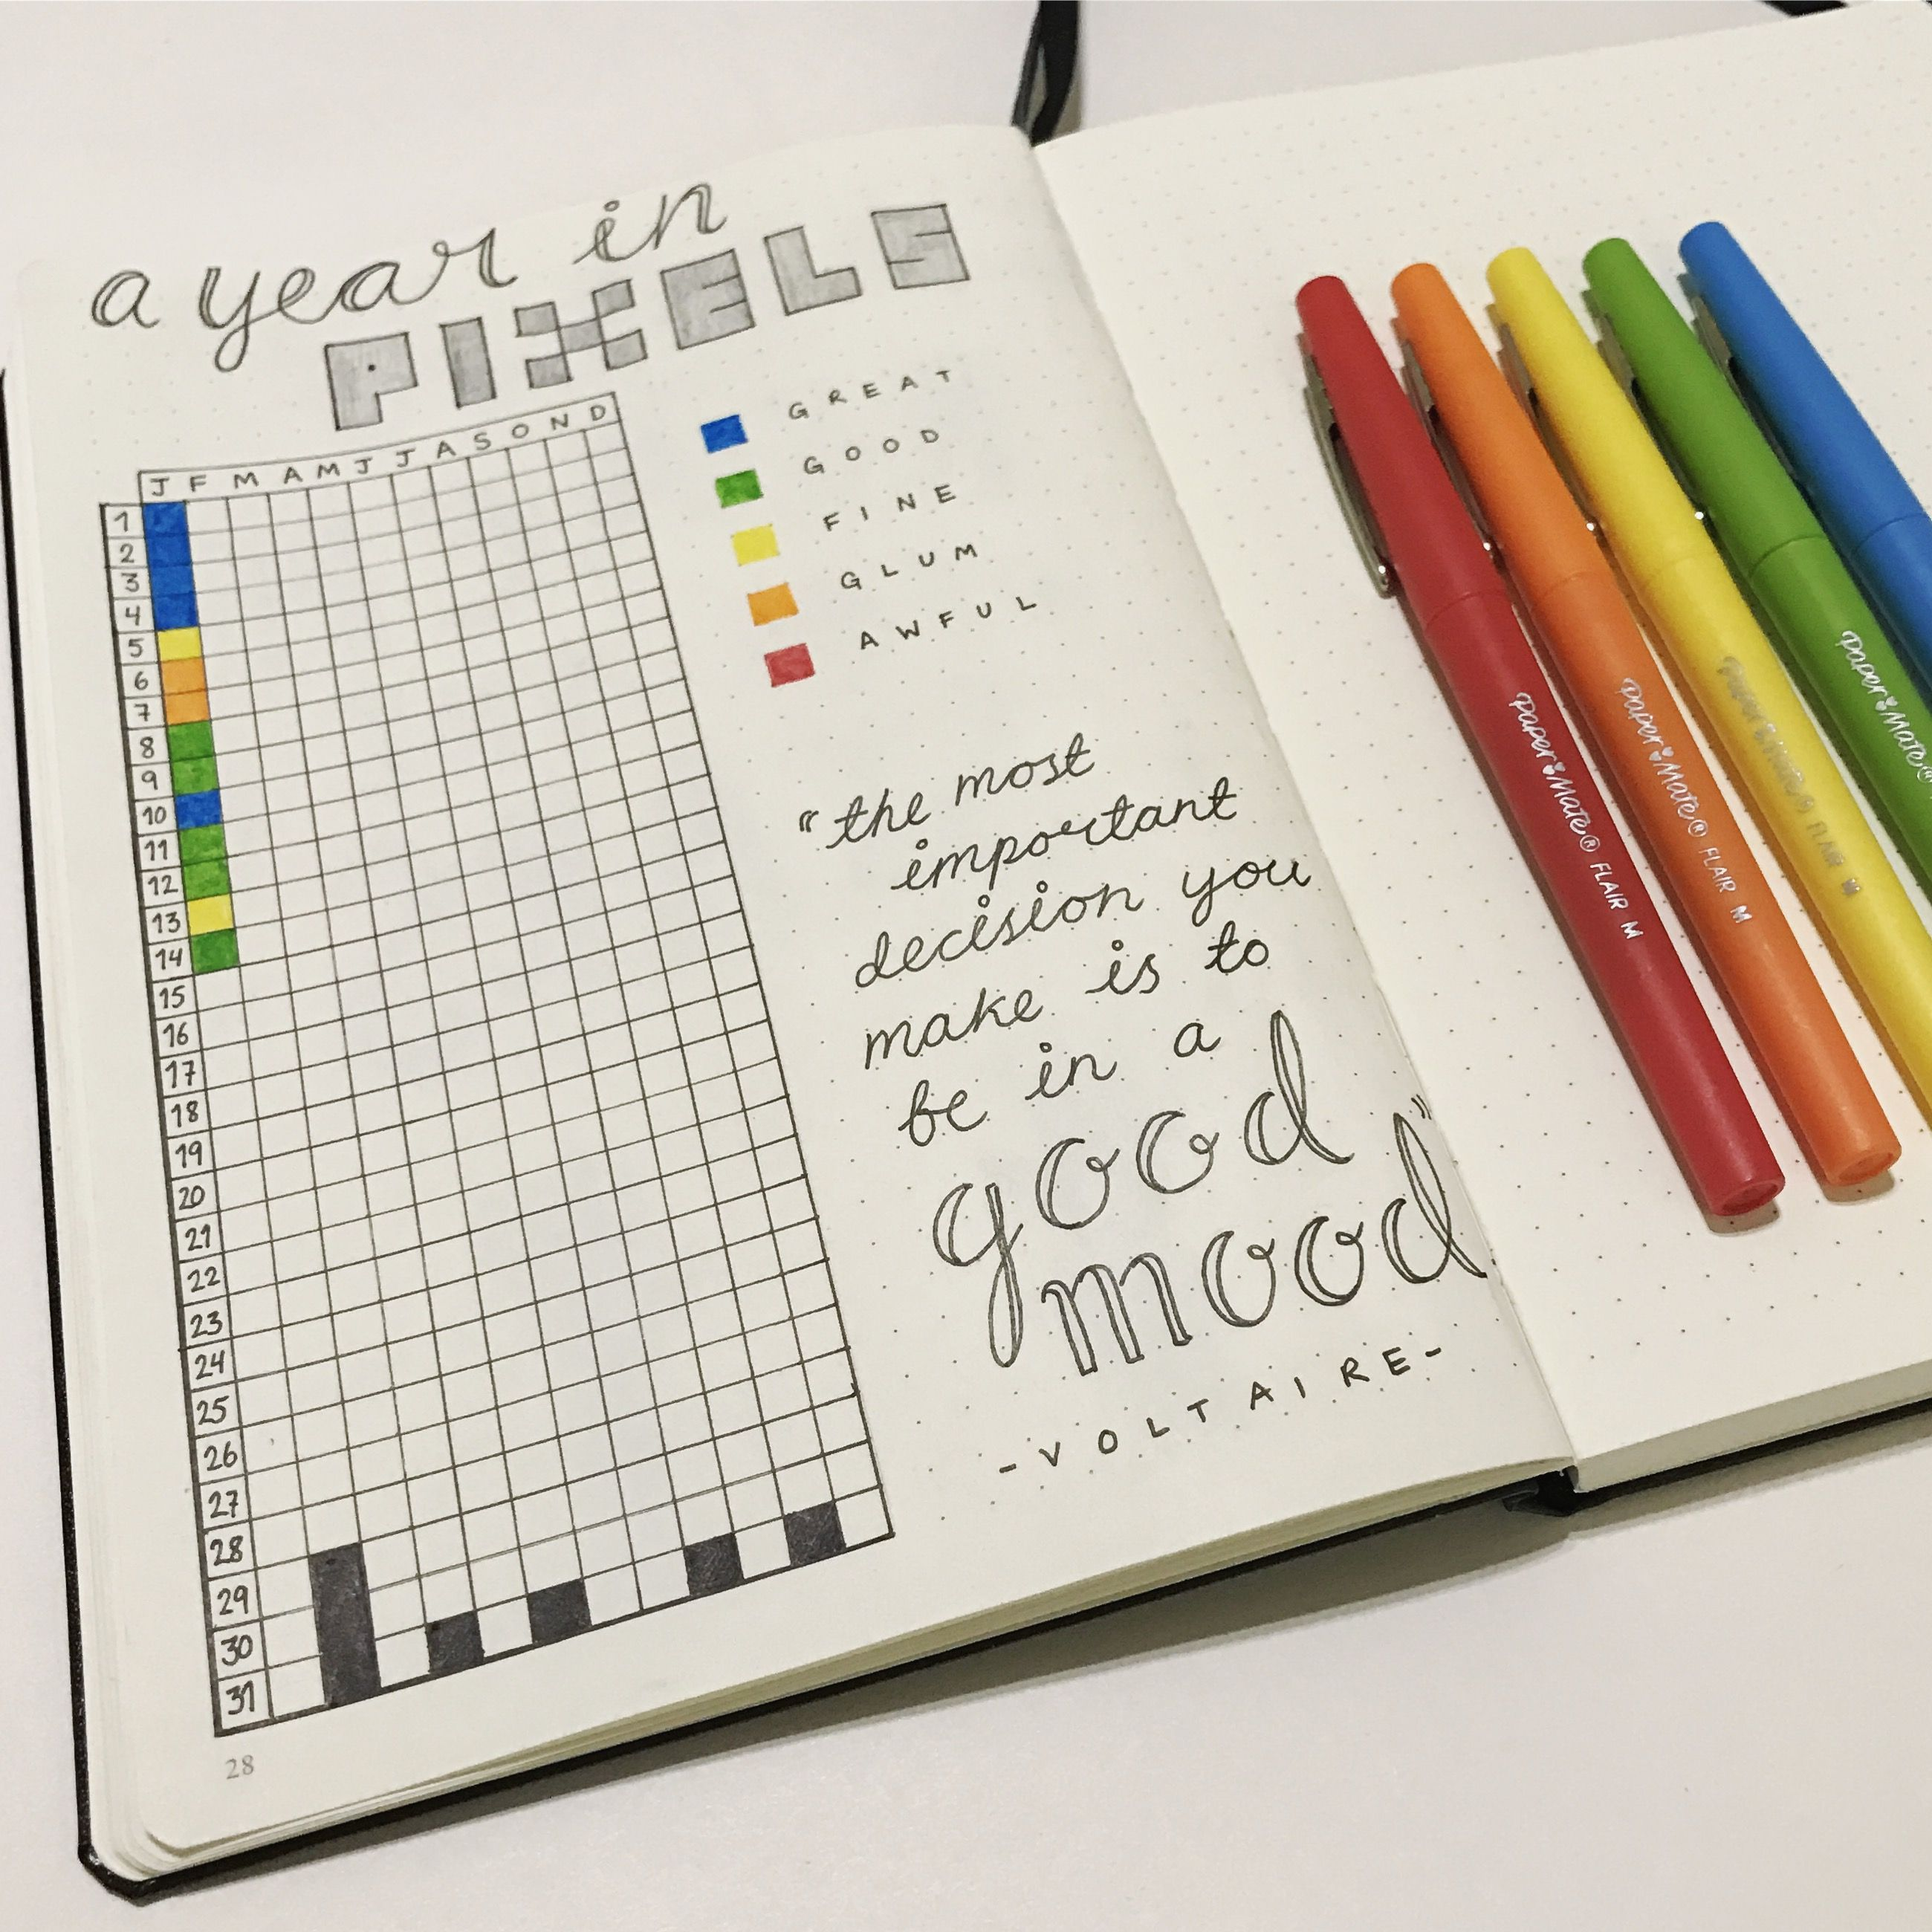 a year in
PIXELS
J F M A M J J A S O N D
1
2
3
4
5
6
7
8
9
10
11
12
13
14
15
16
17
18
19
20
21
22
23
24
25
26
27
28
29
30
31
GREAT
GOOD
FINE
GLUM
AWFUL
"the most
important
decision you
make is to
be in a
good
mood"
-VOLTAIRE-
28
Paper Mate® FLAIR M
Paper Mate® FLAIR M
Paper Mate® FLAIR M
Paper Mate®